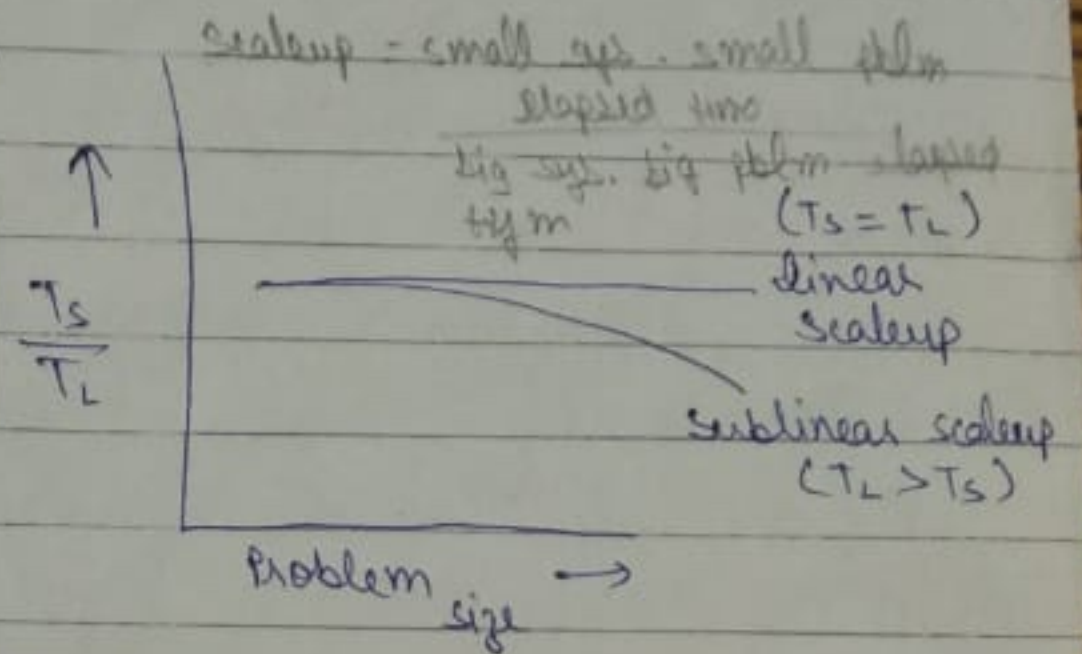 scaleup = small sys. small pblm
elapsed time
big sys. big pblm elapsed
tym
(TS = TL)
linear
scaleup
TS
TL
sublinear scaleup
(TL > TS)
Problem
size